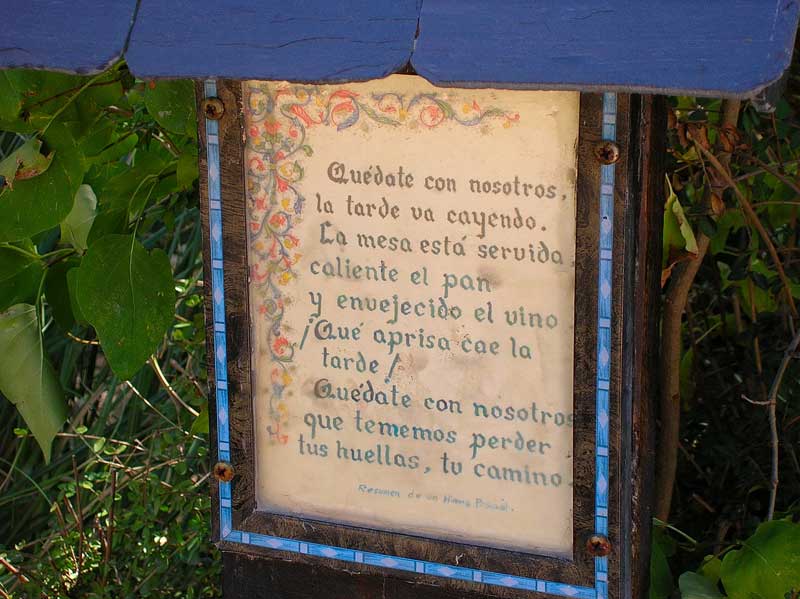 Quédate con nosotros,
la tarde va cayendo.
La mesa está servida,
caliente el pan
y envejecido el vino
¡Qué aprisa cae la
tarde!
Quédate con nosotros
que tememos perder
tus huellas, tu camino.
Resumen de un Himno